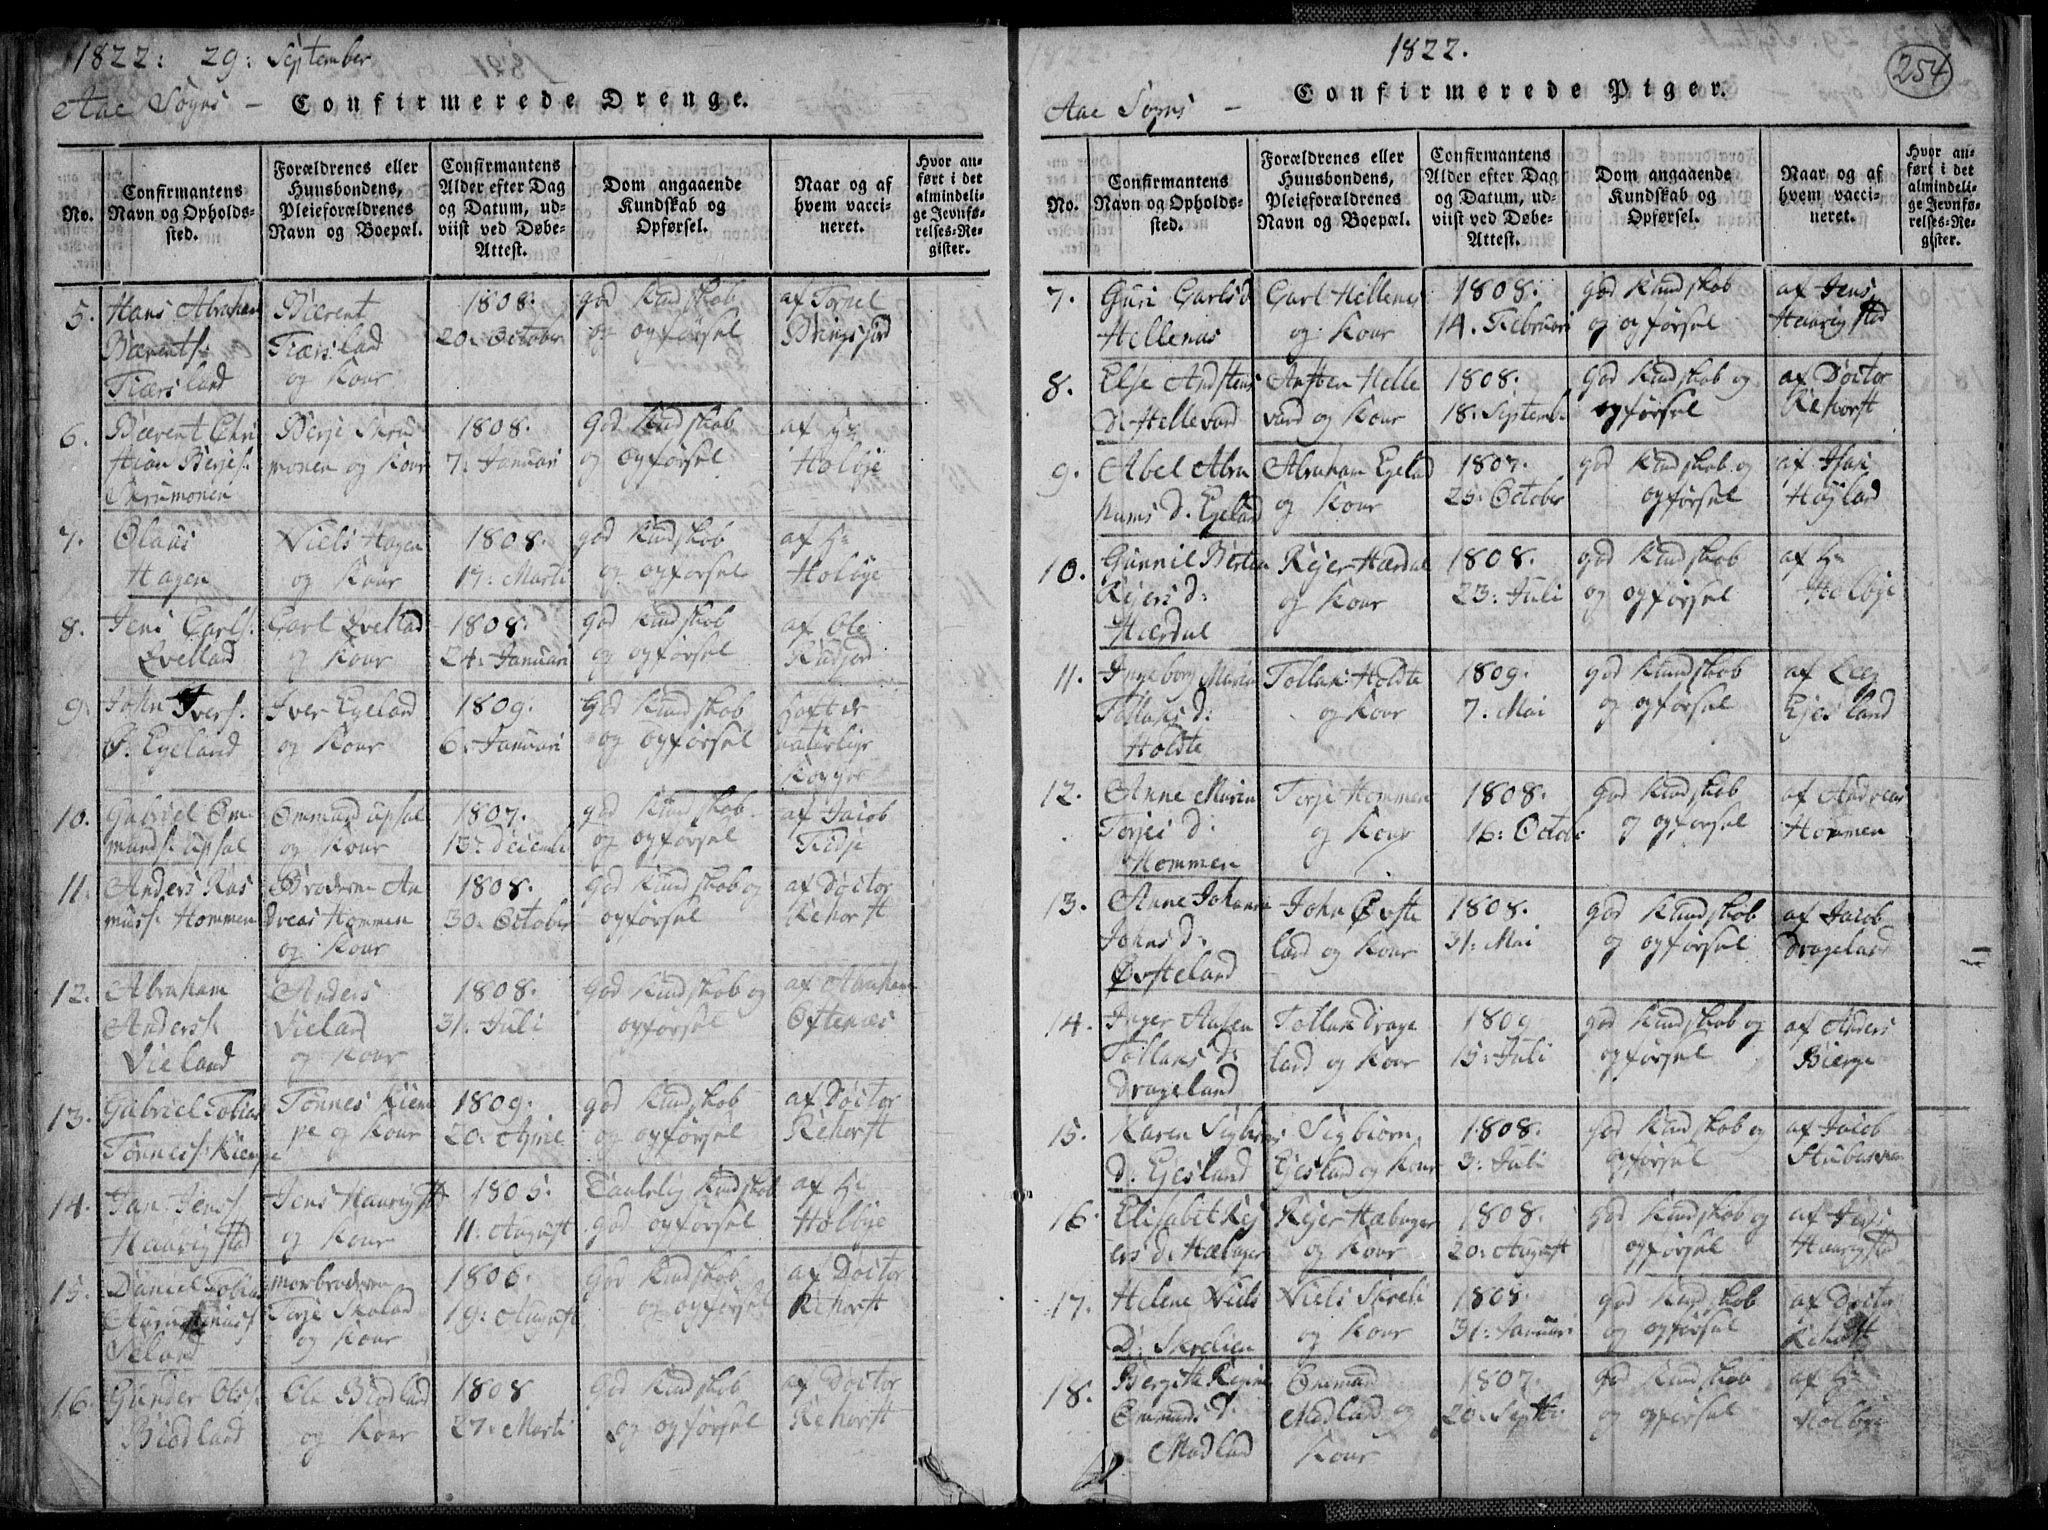 1822: 29: September
Aae Sogns — Confirmerede Drenge.
No.
Confirmantens
Navn og Opholds-
sted.
Forældrenes eller
Huusbondens,
Pleieforældrenes
Navn og Boepæl.
Confirmantens
Alder efter Dag
og Datum, ud-
viist ved Døbe-
Attest.
Dom angaaende
Kundskab og
Opførsel.
Naar og af
hvem vacci-
neret.
Hvor an-
ført i det
almindeli-
ge Jevnfø-
relses-Re-
gister.
5.
Hans Abraham
Bærents:
Fiærsland
Bærent
Fiærsland
og Kone
1808.
20. October
god Kundskab
og opførsel
af Tørrel
6.
Bærent Chri
stian Berjes:
Skrumonen
Berje Skru
monen og Kone
1808.
7: Januari
God Kundskab
og opførsel
af Hr
Holbye
7.
Olaus
Hagen
Niels Hagen
og Kone
1808.
17: Marti
god Kundskab
og opførsel
af Hr
Holbye
8.
Jens Carls:
Qvelland
Carl Qvellad
og Kone
1808.
24: Januari
God Kundskab
og opførsel
af Ole
9.
John Ivers:
Ø. Egeland
Iver Egeland
og Kone
1809.
6. Januari
God Kundskab
og opførsel
haft de
naturlige
Kopper
10.
Gabriel Om
munds: Upsal
Ommund Upsal
og Kone
1807.
13: Decemb
god Kundskab
og opførsel
af Jacob
Fidje
11.
Anders Ras
muss: Hommen
Broderen An
dreas Hommen
og Kone
1808.
30. October
God Kundskab og
opførsel
af Doctor
Rehorst
12.
Abraham
Anders:
Vieland
Anders
Vieland
og Kone
1808.
31. Juli
God Kundskab og
opførsel
af Abraham
Oftenæs
13.
Gabriel Tobias
Tønnes: Kiempe
Tønnes Kiem
pe og Kone
1809.
20. April
god Kundskab
og opførsel
af Doctor
Rehorst
14.
Jan Jens:
Haarigstad
Jens Haarigst
og Kone
1805.
11. August
Taalelig Kundskab
God opførsel
af Hr
Holbye
15.
Daniel Tobias
Seland
morbroderen
Terje Skolad
og Kone
1806.
19: August
God Kundskab
og opførsel
af Doctor
Rehorst
16.
Gunder Ols:
Biodland
Ole Biodland
og Kone
1808
27: Marti
God Kundskab
og opførsel
af Doctor
Rehorst
1822.
254
Aae Sogns — Confirmerede Piger.
No.
Confirmantens
Navn og Opholds-
sted.
Forældrenes eller
Huusbondens,
Pleieforældrenes
Navn og Boepæl.
Confirmantens
Alder efter Dag
og Datum, ud-
viist ved Døbe-
Attest.
Dom angaaende
Kundskab og
Opførsel.
Naar og af
hvem vacci-
neret.
Hvor an-
ført i det
almindeli-
ge Jevnfø-
relses-Re-
gister.
7.
Guri Carlsd
Hellenas
Carl Hellenes
og Kone
1808.
14. Februari
God Kundskab
og opførsel
af Jens
Haarigstad
8.
Else Andstens
D. Hellevard
Ansten Helle
vard og Kone
1808.
18. Septemb
God Kundskab og
opførsel
af Doctor
Rehorst
9.
Abel Abra
hams D. Egeland
Abraham Egelad
og Kone
1807.
25: October
god Kundskab og
opførsel
af
Høylad
10.
Gunnil Berten
Rejers d:
Hærdal
Rejer Hærdal
og Kone
1808.
23: Juli
God Kundskab
og opførsel
af Hr
Holbye
11.
Ingeborg Maria
Tollaks d:
Holdte
Tollak Holdte
og Kone
1809.
7: Mai
god Kundskab
og opførsel
af
Ejesland
12.
Anne Maria
Terjes d:
Hommen
Terje Hommen
og Kone
1808.
16: Octob:
God Kundskab
og opførsel
af Andreas
Hommen
13.
Anne Johanne
Johns d:
Øvsteland
John Øvste
land og Kone
1808.
31: Mai
god Kundskab
og opførsel
af Jacob
Drageland
14.
Inger Ansen
Tollaks d:
Drageland
Tollak Drage
land og Kone
1809
15: Juli
god Kundskab og
opførsel
af Anders
Bierge
15.
Karen Sigbiørns
D. Ejesland
Sigbiørn
Ejesland og Kone
1808.
3: Juli
god Kundskab og
opførsel
af Jacob
16.
Elisabet Rej
ers d. Hæbager
Rejer Hæbager
og Kone
1808.
20: August
God Kundskab og
opførsel
af Jens
Haarigstad
17.
Helene Niels
D: Skrelien
Niels Skreli
og Kone
1808.
31: Januari
God Kundskab
og opførsel
af Doctor
Rehorst
18.
Bergith Regine
Ommunds d:
Modland
Ommund
Modland og
Kone
1807.
20. Septb:
God Kundskab
og opførsel
af Hr
Holbye